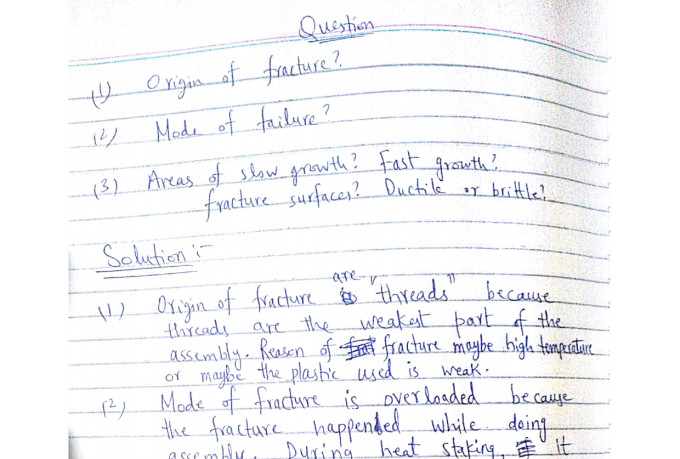 Question
(1) Origin of fracture?
(2) Mode of failure?
(3) Areas of slow growth? Fast growth?
fracture surfaces? Ductile or brittle?
Solution :-
(1) Origin of fracture are "threads" because
threads are the weakest part of the
assembly. Reason of fracture maybe high temperature
or maybe the plastic used is weak.
(2) Mode of fracture is overloaded because
the fracture happended while doing
assembly. During heat staking, it